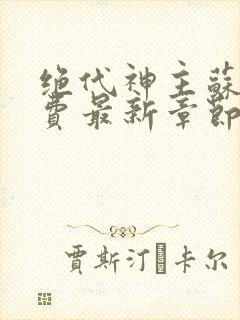 绝代神主蘇
費最新章節
賈斯汀�卡尔